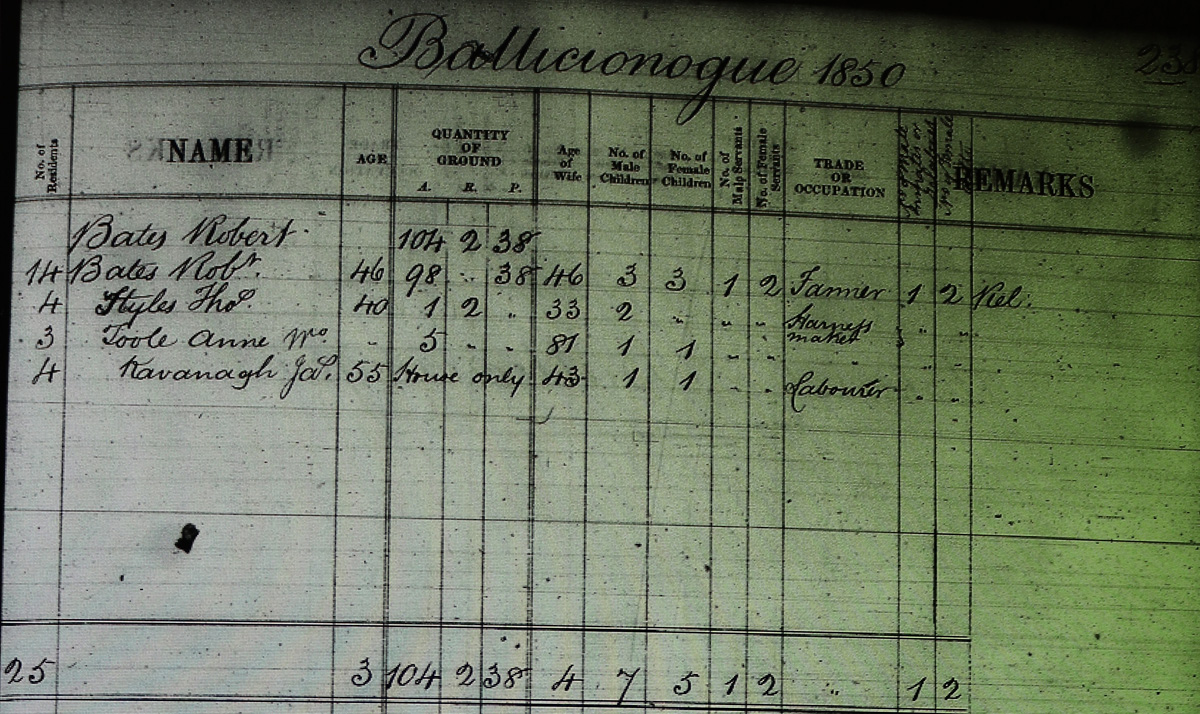 Ballicionogue 1850
No. of Residents NAME AGE QUANTITY OF GROUND A. R. P. Age of Wife No. of Male Children No. of Female Children No. of Male Servants No. of Female Servants TRADE OR OCCUPATION REMARKS
Bates Robert 104 2 38
14 Bates Robt. 46 98 .. 38 46 3 3 1 2 Farmer 1 2
4 Styles Thos. 40 1 2 " 33 2 " " " Harness maker " "
3 Toole Anne Wo " 5 " " 81 1 1 " " " "
4 Kavanagh Jas. 55 House only 43 1 1 " " Labourer " "
25 3 104 2 38 4 7 5 1 2 " 1 2